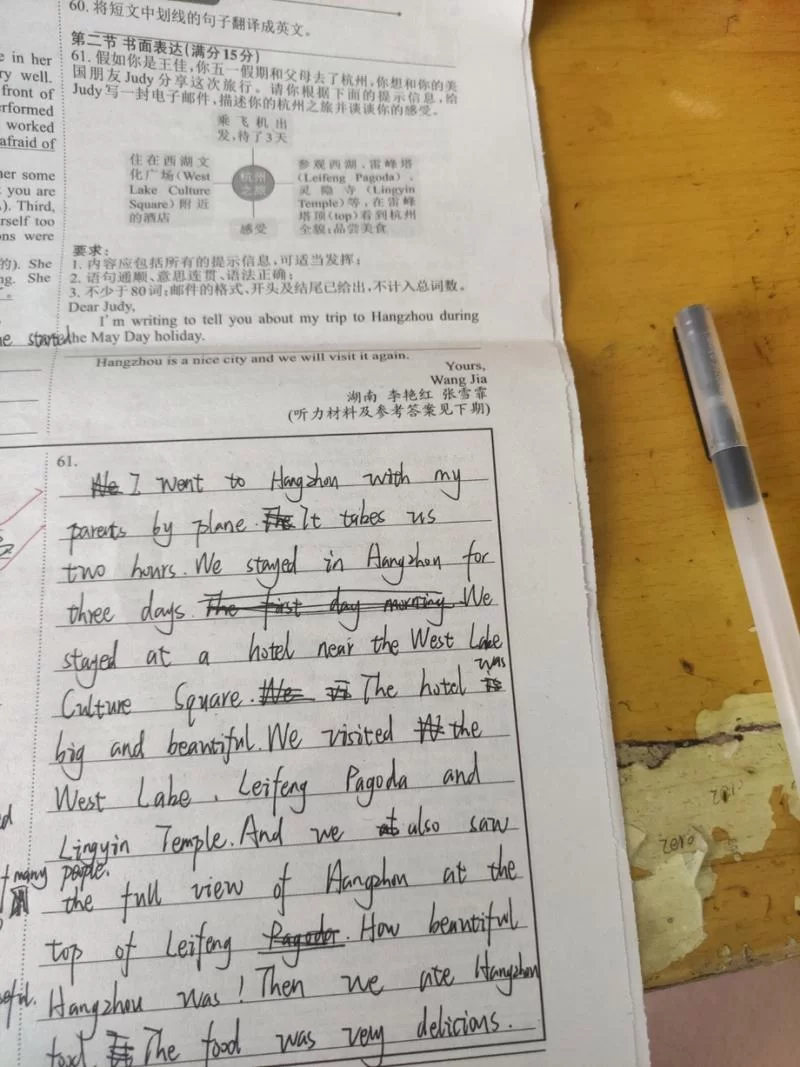 60.将短文中划线的句子翻译成英文。
第二节 书面表达(满分15分)
61.假如你是王佳,你五一假期和父母去了杭州,你想和你的美
国朋友Judy分享这次旅行。请你根据下面的提示信息,给
Judy写一封电子邮件,描述你的杭州之旅并谈谈你的感受。
乘飞机出
发,待了3天
住在西湖文
化广场(West
Lake Culture
Square)附近
的酒店
杭州
之旅
参观西湖、雷峰塔
(Leifeng Pagoda)、
灵隐寺(Lingyin
Temple)等,在雷峰
塔顶(top)看到杭州
全貌;品尝美食
感受
要求:
1.内容应包括所有的提示信息,可适当发挥;
2.语句通顺、意思连贯、语法正确;
3.不少于80词;邮件的格式、开头及结尾已给出,不计入总词数。
Dear Judy,
I'm writing to tell you about my trip to Hangzhou during
the May Day holiday.
Hangzhou is a nice city and we will visit it again.
Yours,
Wang Jia
湖南 李艳红 张雪霏
(听力材料及参考答案见下期)
61.
We I went to Hangzhou with my
parents by plane. The It takes us
two hours. We stayed in Hangzhou for
three days. The first day morning. We
stayed at a hotel near the West Lake
Culture Square. We The hotel is was
big and beautiful. We visited the
West Lake, Leifeng Pagoda and
Lingyin Temple. And we at also saw
the full view of Hangzhou at the
top of Leifeng Pagoda. How beautiful
Hangzhou was! Then we ate Hangzhou
food. It The food was very delicious.
e in her
ry well.
front of
erformed
worked
afraid of
her some
you are
). Third,
rself too
ons were
的). She
ng. She
started
many people.